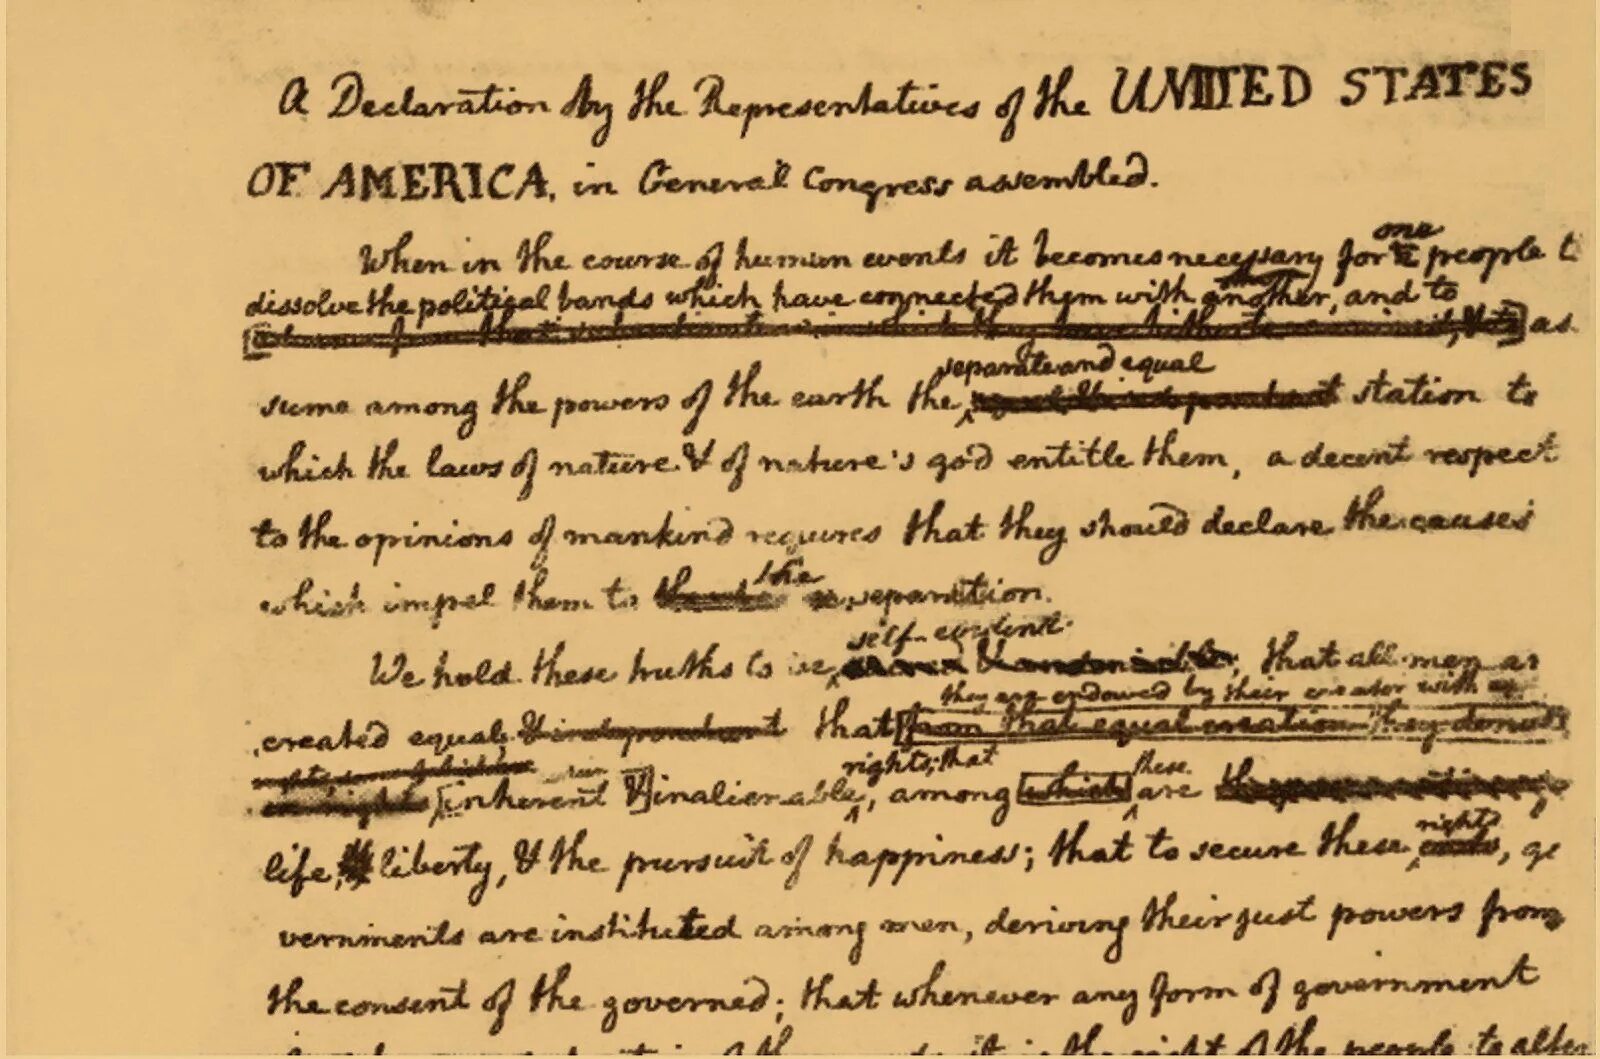 A Declaration by the Representatives of the UNITED STATES
OF AMERICA, in General Congress assembled.
one
When in the course of human events it becomes necessary for a people t
dissolve the political bands which have connected them with another, and to
as
separate and equal
sume among the powers of the earth the equal & independant station to
which the laws of nature & of nature's god entitle them, a decent respect
to the opinions of mankind requires that they should declare the causes
the
which impel them to separation.
self-evident
We hold these truths to be sacred & undeniable, that all men ar
they are endowed by their creator with
created equal & independant that from that equal creation they
rights; that
these
inherent & inalienable, among which are
rights
life, liberty, & the pursuit of happiness; that to secure these ends, go
vernments are instituted among men, deriving their just powers from
the consent of the governed; that whenever any form of government
it is the right of the people to alter